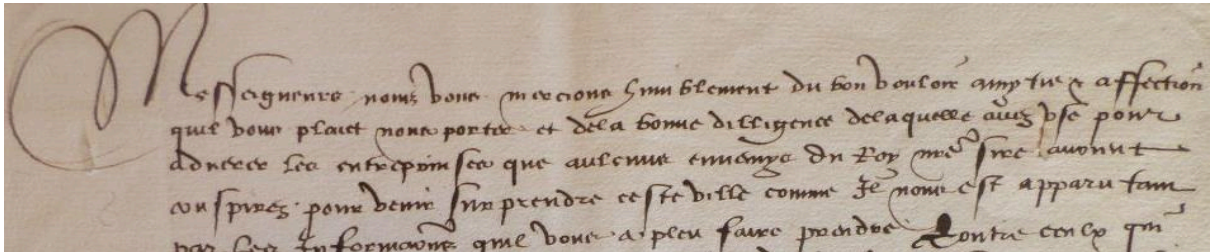 Messeigneurs nous vous mercions humblement du bon vouloir amytie & affection
quil vous plaict nous porter et de la bonne dilligence de laquelle avez usé pour
adverer les entreprinses que aulcuns ennemys du Roy nre sire avoient
conspirez pour venir surprendre ceste ville comme Il nous est apparu tam
par les informacions quil vous a pleu faire prendre Contre ceulx qui